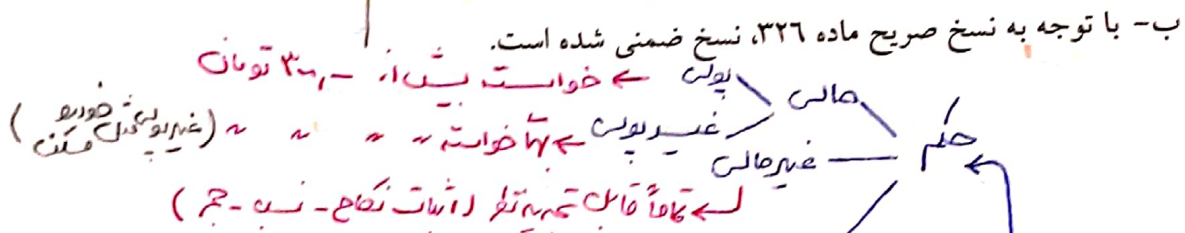 ب- با توجه به نسخ صریح ماده ۳۲٦، نسخ ضمنی شده است.
حکم
مالی
پولی ← خواسته بیش از ۳۰۰,۰۰۰ تومان
غیر پولی ← بهای خواسته " " " " (غیر پولی مثل خودرو مسکن)
غیر مالی
← تماماً قابل تجدیدنظر (اثبات نکاح - نسب - حجر)